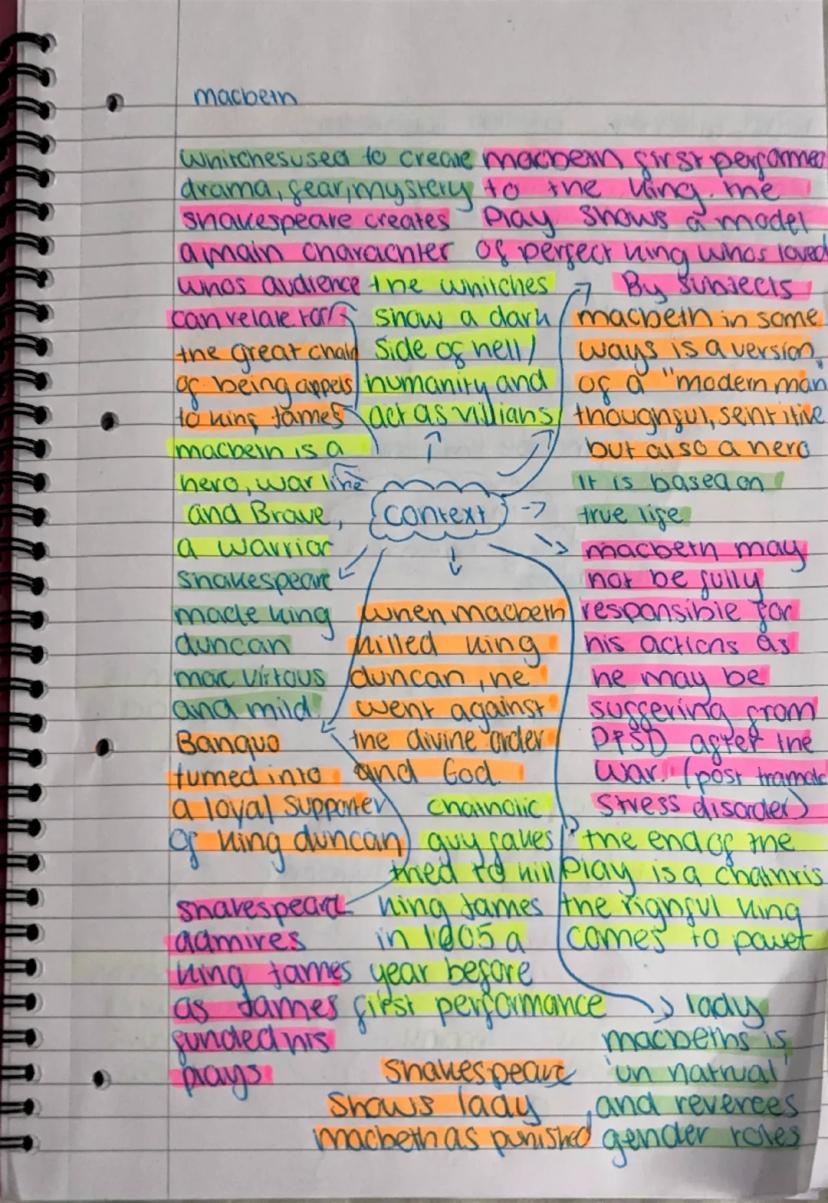 macbeth
whitches used to create
drama, fear, mystery
macbeth first performed
to the king. the
play shows a model
of perfect king whos loved
By subjects
shakespeare creates
a main charachter
whos audience
can relate to
the whitches
show a dark
side of hell/
humanity and
act as villians
macbeth in some
ways is a version
of a "modern man"
thoughful, sentitive
but also a hero
the great chain
of being appels
to king James
macbeth is a
hero, war like
and Brave,
a warrior
context
it is based on
true life
shakespeare
made king
duncan
mor virtous
and mild
when macbeth
killed king
duncan, he
went against
the divine order
and God.
macbeth may
not be fully
responsible for
his actions as
he may be
suffering from
PTSD after the
war. (post tramatic
stress disorder)
Banquo
turned into
a loyal supporter
of king duncan
chatholic
guy fakes
tried to kill
king James
in 1605 a
year before
first performance
the end of the
play is a chathris
the righful king
comes to power
shakespeare
admires
king James
as James
funded his
plays
lady
macbeths is
'un natrual'
and reverces
gender roles
shakespeare
shows lady
macbeth as punished